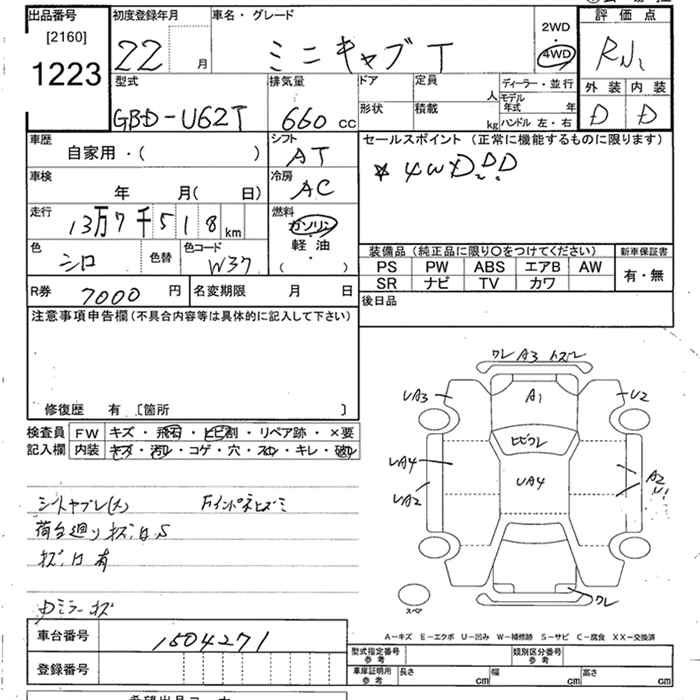 出品番号
[2160]
1223
初度登録年月
22 月
車名・グレード
ミニキャブT
2WD
・
4WD
評価点
外装 内装
D D
型式
GBD-U62T
排気量
660 cc
ドア
形状
定員
人
積載
kg
ディーラー・並行
モデル年式 年
ハンドル 左・右
車歴
自家用・( )
シフト
AT
車検
年 月( 日)
冷房
AC
走行
13万7千518km
燃料
ガソリン
・
軽油
( ・ )
色
シロ
色替
色コード
W37
R券 7000 円
名変期限 月 日
セールスポイント(正常に機能するものに限ります)
装備品(純正品に限り〇をつけてください)
PS PW ABS エアB AW
SR ナビ TV カワ
新車保証書
有・無
後日品
注意事項申告欄(不具合内容等は具体的に記入して下さい)
修復歴 有 〔箇所 〕
検査員
記入欄
FW キズ・飛石・ヒビ割・リペア跡・×要
内装 キズ・汚レ・コゲ・穴・スレ・キレ・破レ
荷台廻りキズ、凹、S
キズ、凹 有
ワレ A3
UA3
A1
U2
ヒビワレ
UA4
UA4
UA2
A2
ワレ
スペア
車台番号 1504271
登録番号
A-キズ E-エクボ U-凹み W-補修跡 S-サビ C-腐食 XX-交換済
型式指定番号
参考
類別区分番号
参考
車庫証明用
参考
長さ cm 幅 cm 高さ cm